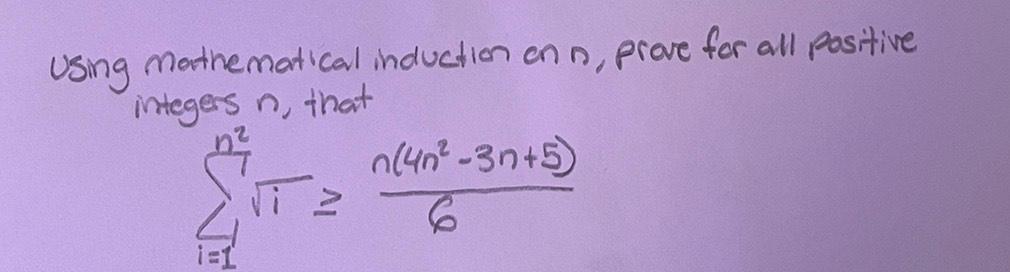 Using mathematical induction on n, prove for all positive
integers n, that
n²
∑ √i ≥ n(4n²-3n+5)/6
i=1